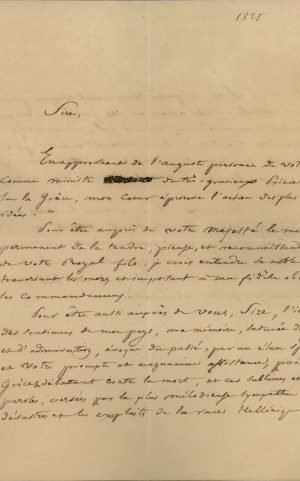 1825
Sire,
En approchant de l'auguste personne de vot
comme ministre du très-gracieux Prince
sur la Grèce, mon coeur éprouve l'action des plus
idées!
Pour être auprès de votre Majesté le me
permanent de la tendre, pieuse, et reconnaissant
de votre Royal fils; je crois entendre sa noble
traversant les mers et imposant à un fidèle ob
ses commandemens.
Pour être aussi auprès de vous, Sire, l'i
des sentimens de mon pays, ma mémoire, saturée d
et d'admiration, évoque du passé, par un élan s
et votre prompte et magnanime assistance,
Grèce débattant contre la mort, et ces sublimes
paroles, versées par la plus mélodieuse sympathie
désastres et les exploits de la race Hellénique